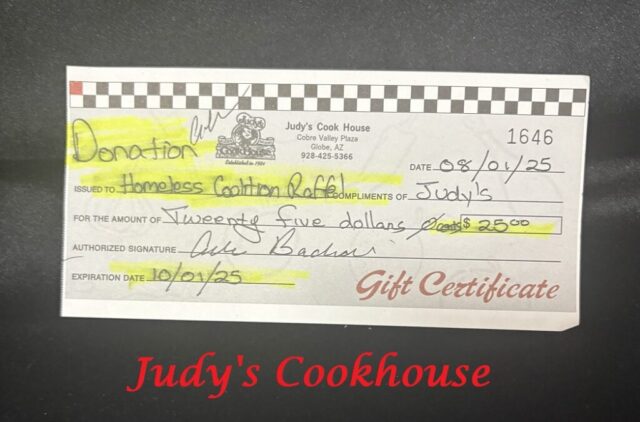 Judy's Cook House
Cobre Valley Plaza
Globe, AZ
928-425-5366
1646
Donation
Judy's
COOKHOUSE
Established in 1984
DATE 08/01/25
ISSUED TO Homeless Coaltion Raffel COMPLIMENTS OF Judy's
FOR THE AMOUNT OF Tweenty five dollars $ 25.00
AUTHORIZED SIGNATURE
EXPIRATION DATE 10/01/25
Gift Certificate
Judy's Cookhouse